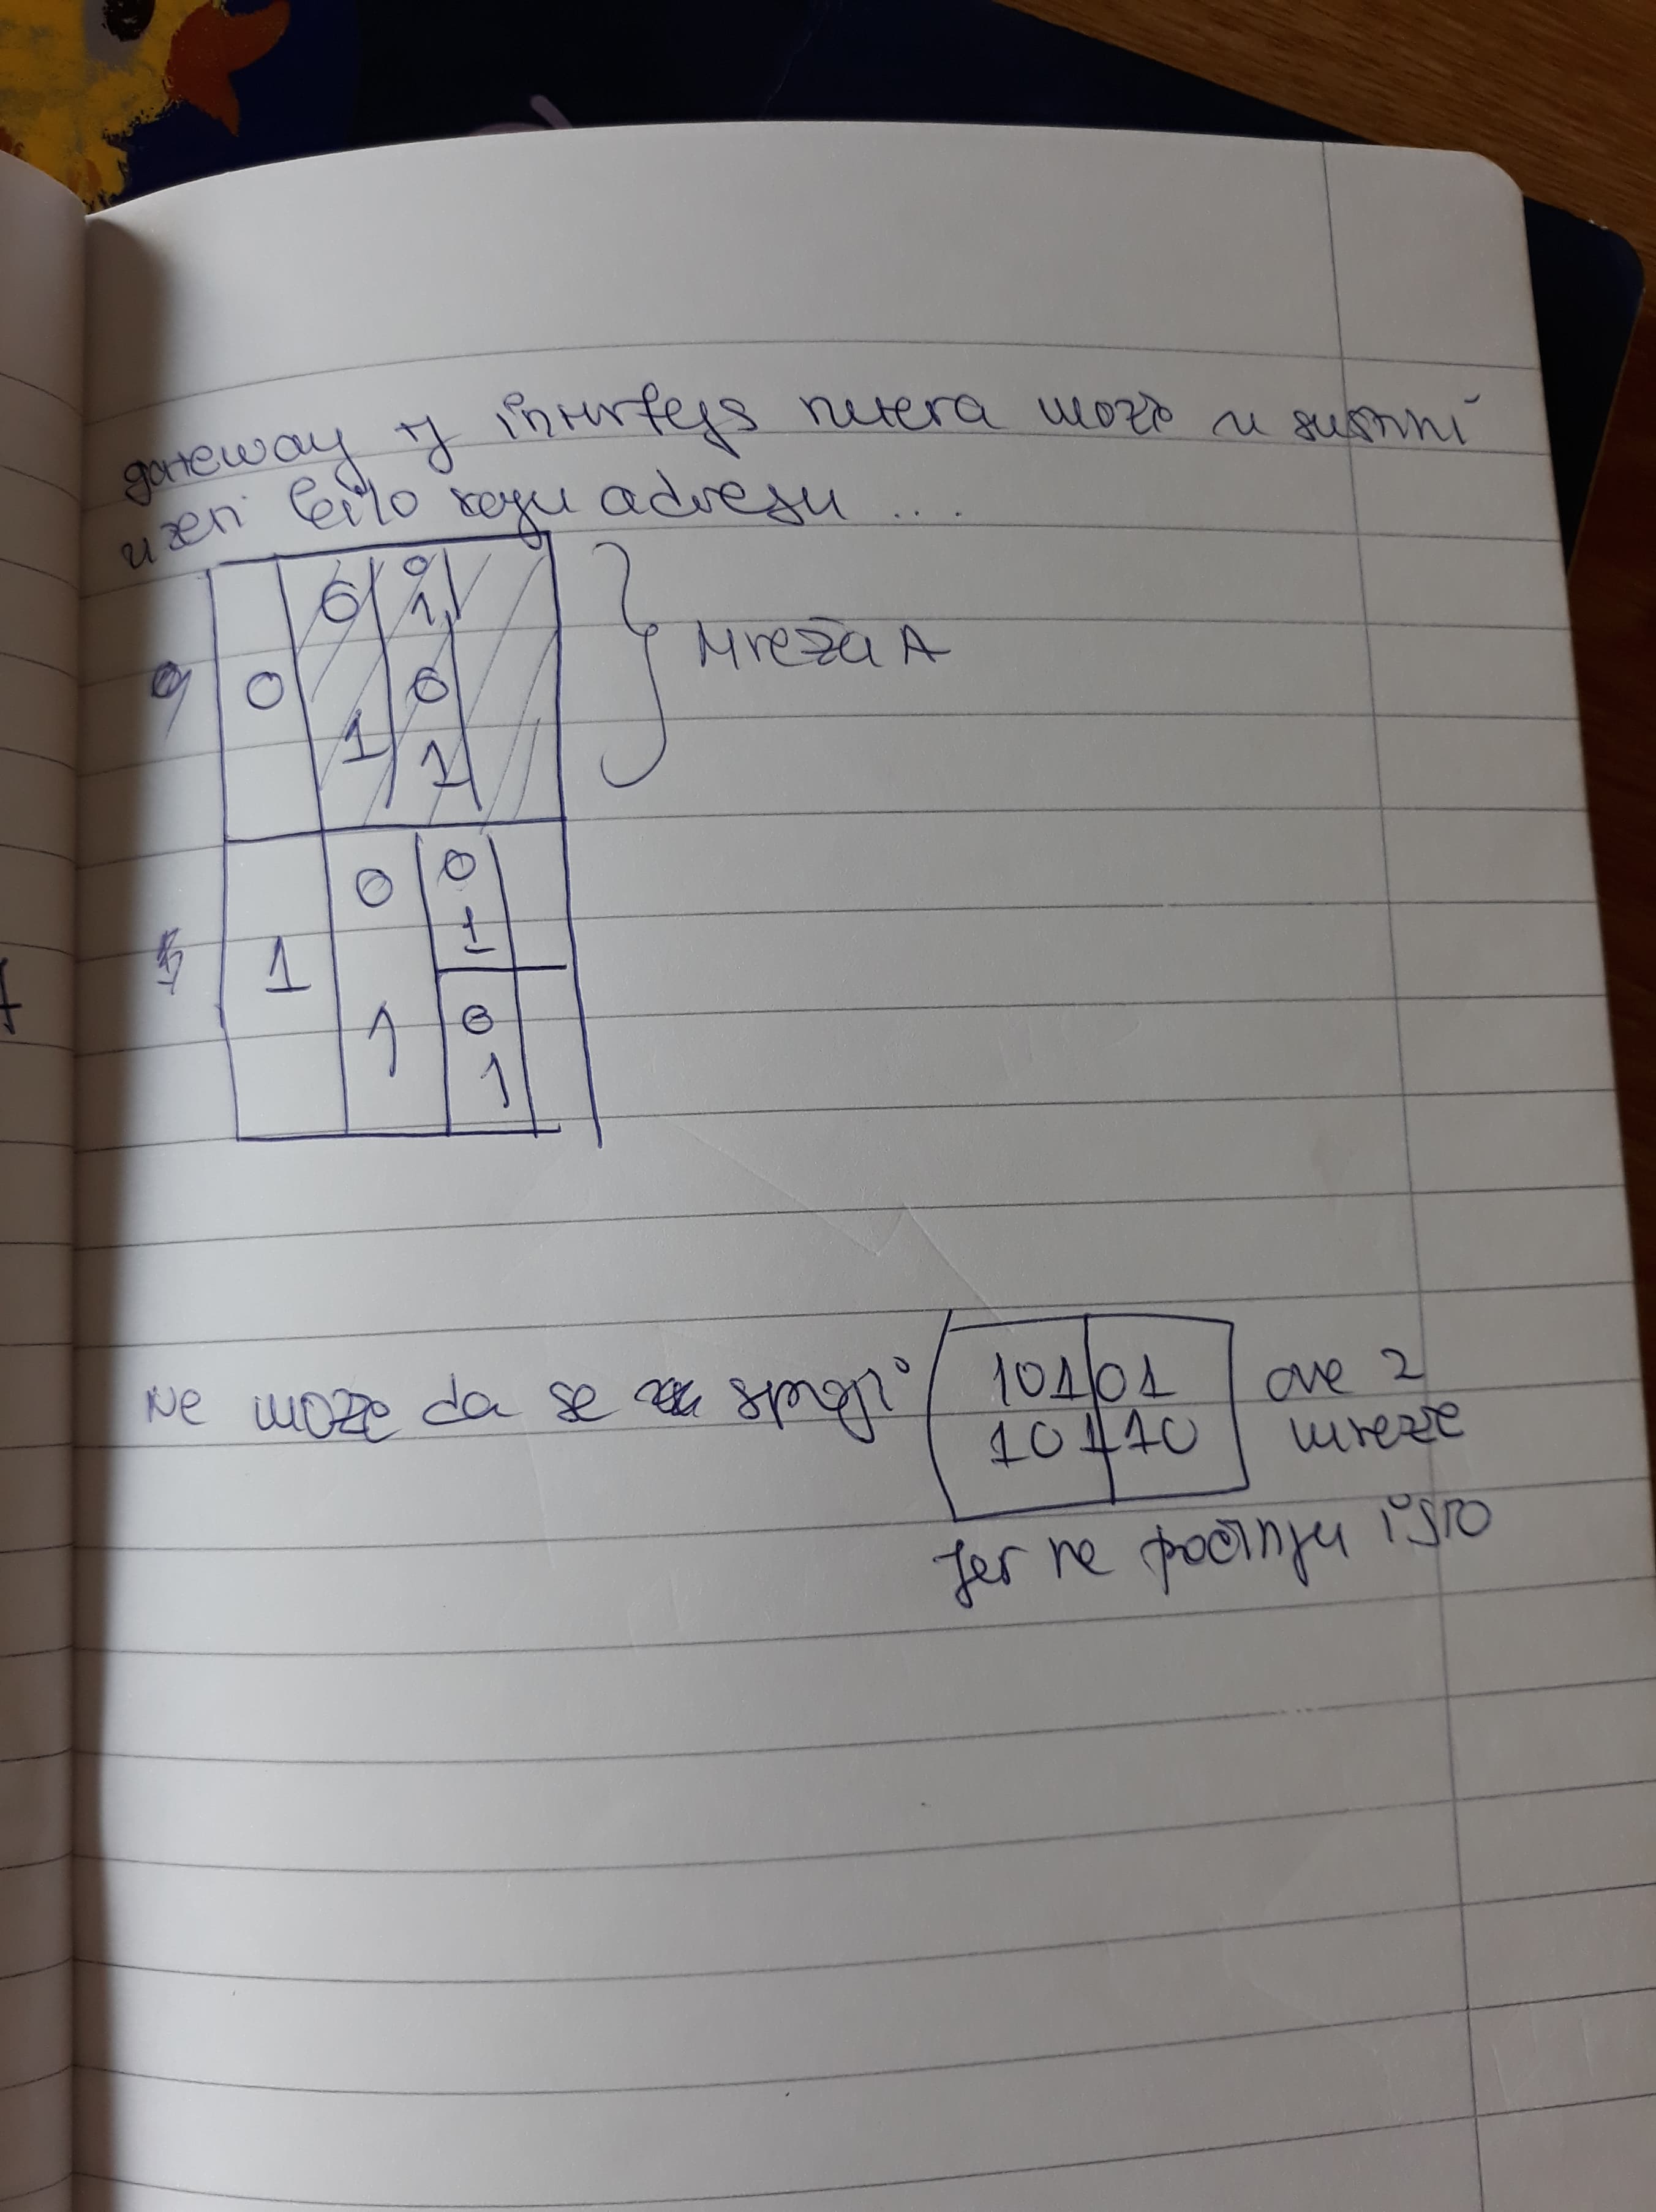 gateway tj interfejs rutera može u suštini
uzeti bilo koju adresu ....
0 0
1
0 0
1 1
Mreža A
0 0
1
1
1 0
1
Ne može da se spoji
101|01 ove 2
101|10 mreže
jer ne počinju isto